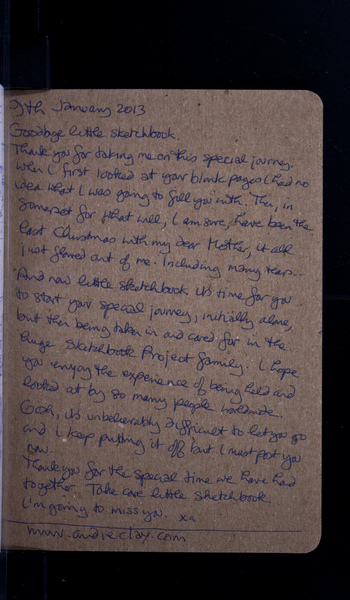 January 2013
Goodbye little sketchbook.
Thank you for taking me on this special journey.
When I first looked at your blank pages I had no
idea what I was going to fill you with. Then, in
Somerset for what will, I am sure, have been the
last Christmas with my dear Mother, it all
just flowed out of me. Including many tears...
And now little sketchbook it's time for you
to start your special journey, initially alone,
but then being taken in and cared for in the
huge Sketchbook Project family. I hope
you enjoy the experience of being held and
looked at by so many people worldwide.
Gosh, it's unbelievably difficult to let you go
and I keep putting it off but I must post you
now.
Thank you for the special time we have had
together. Take care little sketchbook
I'm going to miss you. xx
www.andieclay.com